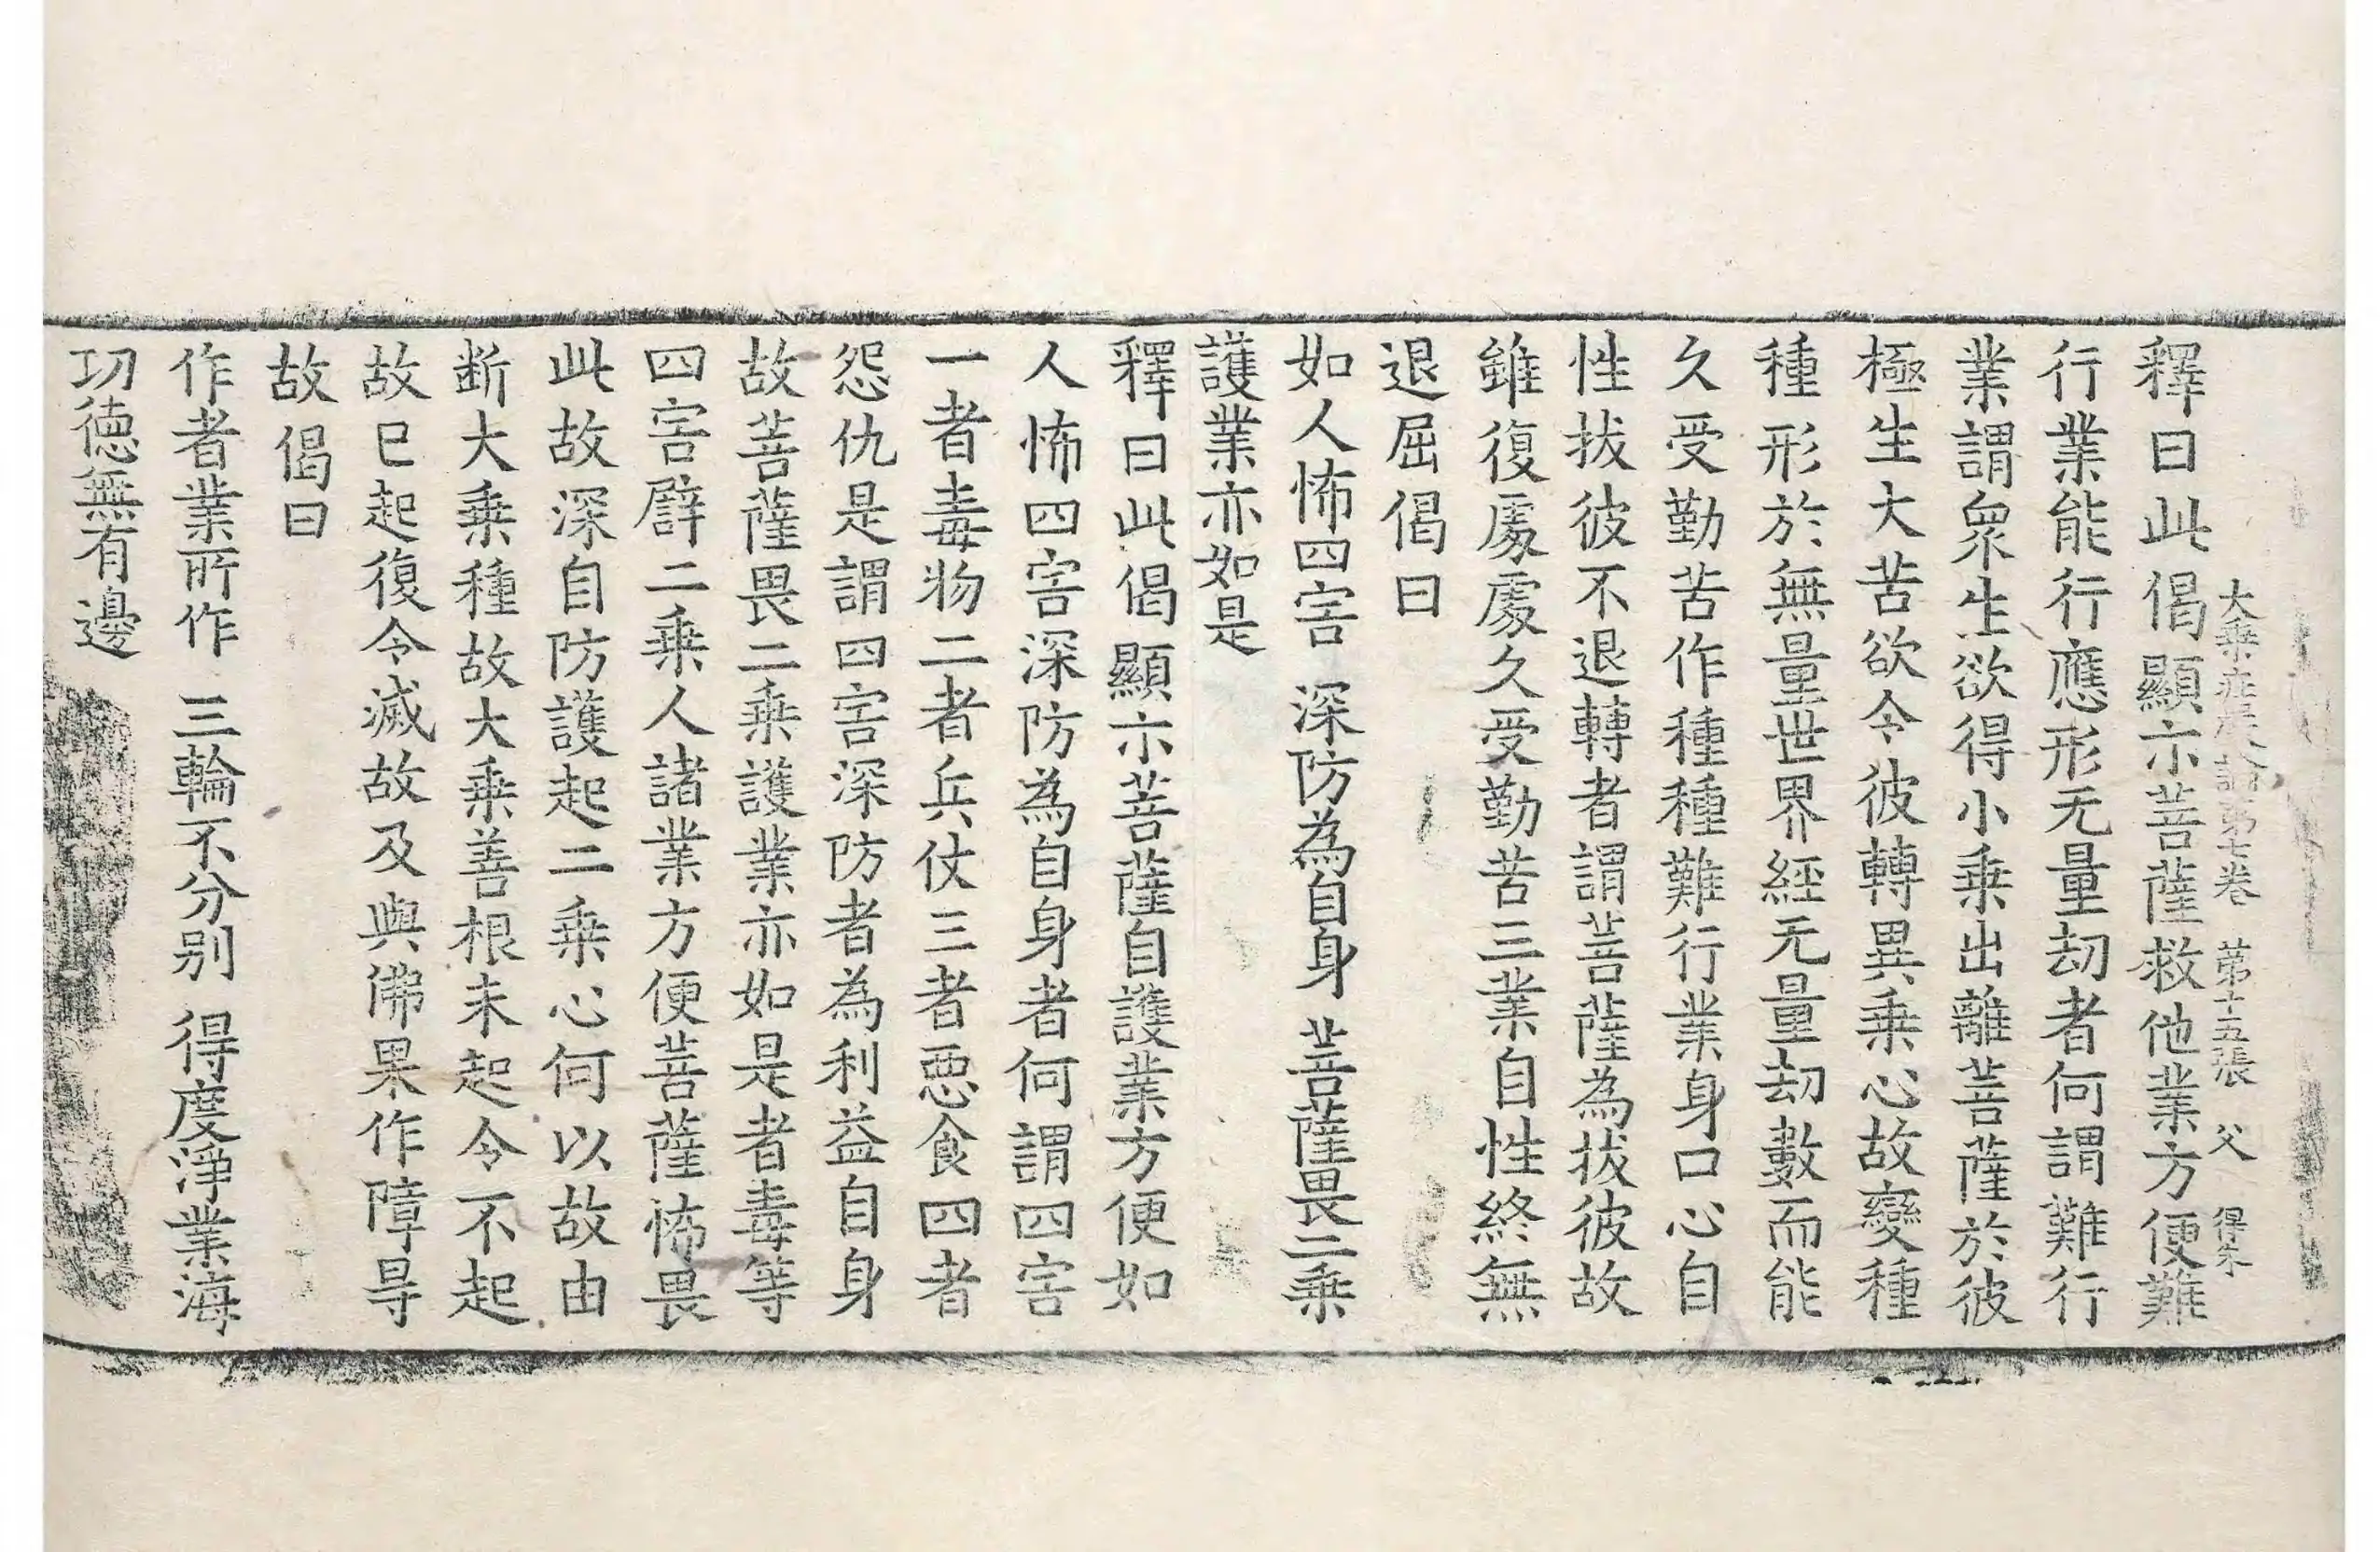 大乘莊嚴論第七卷 第十五張 父 得朱
釋曰此偈顯示菩薩救他業方便難
行業能行應形无量劫者何謂難行
業謂眾生欲得小乗出離菩薩於彼
極生大苦欲令彼轉異乗心故變種
種形於無量世界經无量劫數而能
久受勤苦作種種難行業身口心自
性拔彼不退轉者謂菩薩為拔彼故
雖復處處久受勤苦三業自性終無
退屈偈曰
如人怖四害 深防為自身 菩薩畏二乗
護業亦如是
釋曰此偈顯示菩薩自護業方便如
人怖四害深防為自身者何謂四害
一者毒物二者兵仗三者惡食四者
怨仇是謂四害深防者為利益自身
故菩薩畏二乗護業亦如是者毒等
四害譬二乗人諸業方便菩薩怖畏
此故深自防護起二乗心何以故由
断大乗種故大乗善根未起令不起
故已起復令滅故及與佛果作障㝵
故偈曰
作者業所作 三輪不分别 得度淨業海
功德無有邊